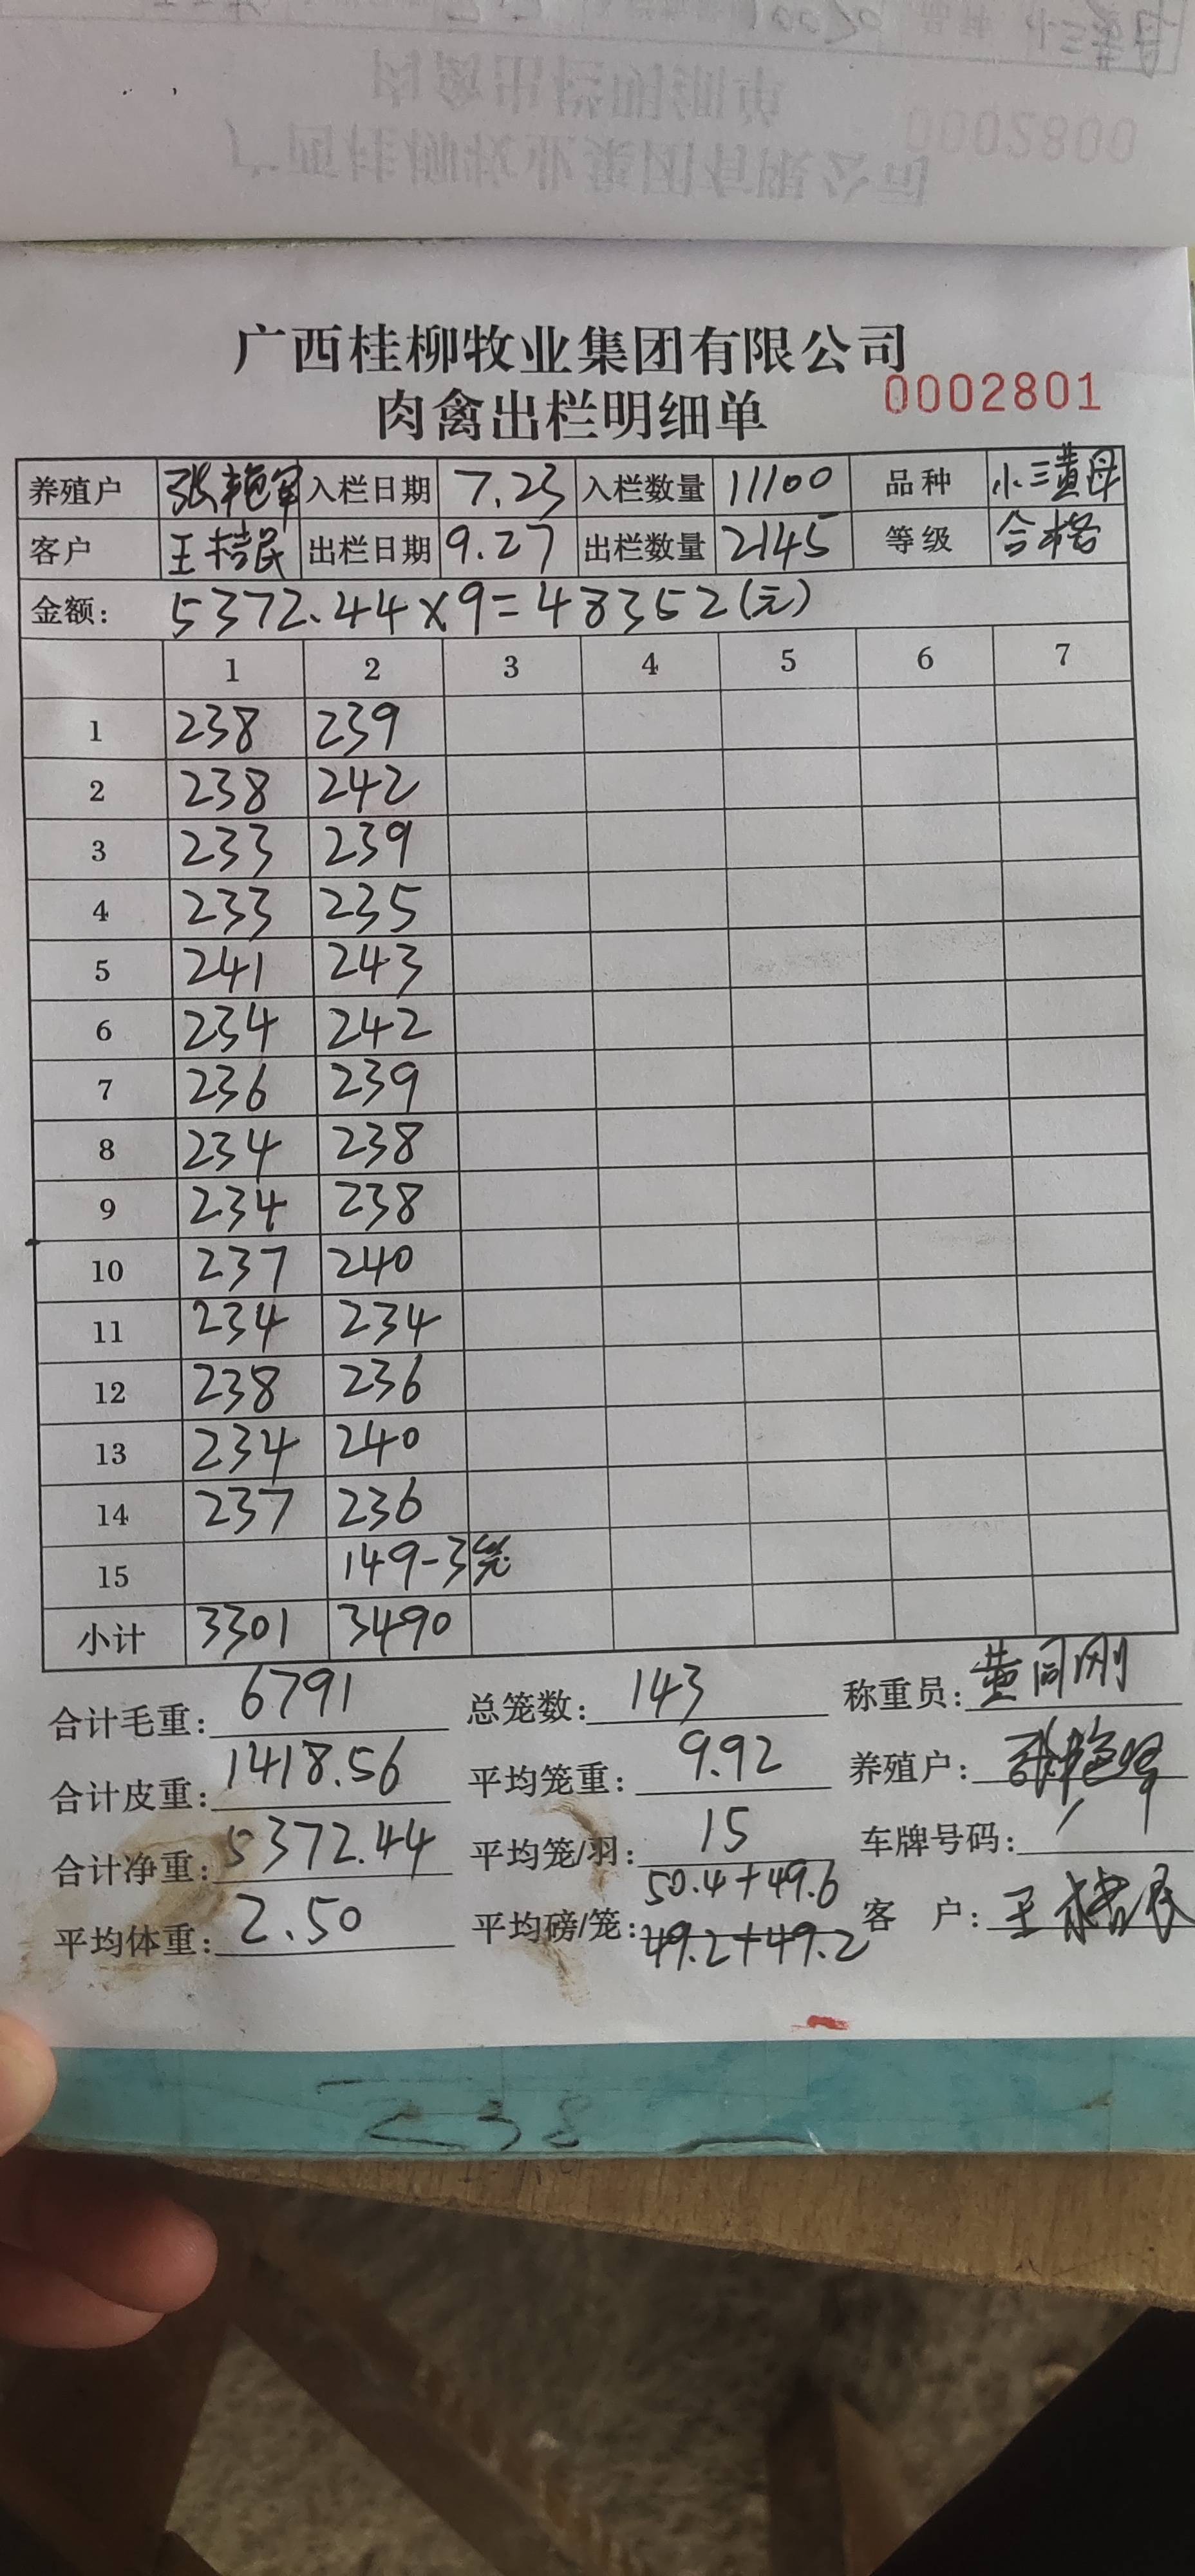 0002800
广西桂柳牧业集团有限公司
肉禽出栏明细单
0002801
养殖户 张艳军 入栏日期 7.23 入栏数量 11100 品种 小三黄母
客户 王桔民 出栏日期 9.27 出栏数量 2145 等级 合格
金额: 5372.44×9=48352(元)
1 2 3 4 5 6 7
1 238 239
2 238 242
3 233 239
4 233 235
5 241 243
6 234 242
7 236 239
8 234 238
9 234 238
10 237 240
11 234 234
12 238 236
13 234 240
14 237 236
15 149-3笼
小计 3301 3490
合计毛重: 6791 总笼数: 143 称重员: 黄同刚
合计皮重: 1418.56 平均笼重: 9.92 养殖户:
合计净重: 5372.44 平均笼/羽: 15 车牌号码: /
平均体重: 2.50 平均磅/笼: 50.4+49.6 49.2+49.2 客 户: 王桔民
238